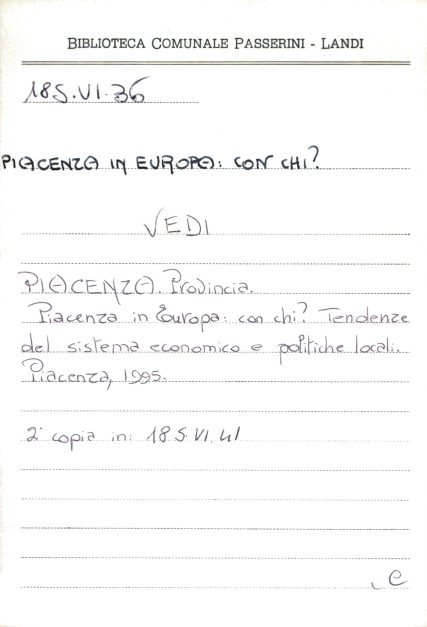 BIBLIOTECA COMUNALE PASSERINI - LANDI
18S.VI.36
PIACENZA IN EUROPA: CON CHI?
VEDI
PIACENZA. Provincia.
Piacenza in Europa: con chi? Tendenze
del sistema economico e politiche locali.
Piacenza, 1995.
2ª copia in: 18 S. VI. 41
e